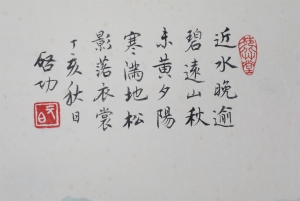 近水晚逾
碧遠山秋
未黄夕陽
寒滿地松
影落衣裳
丁亥秋日
啓功